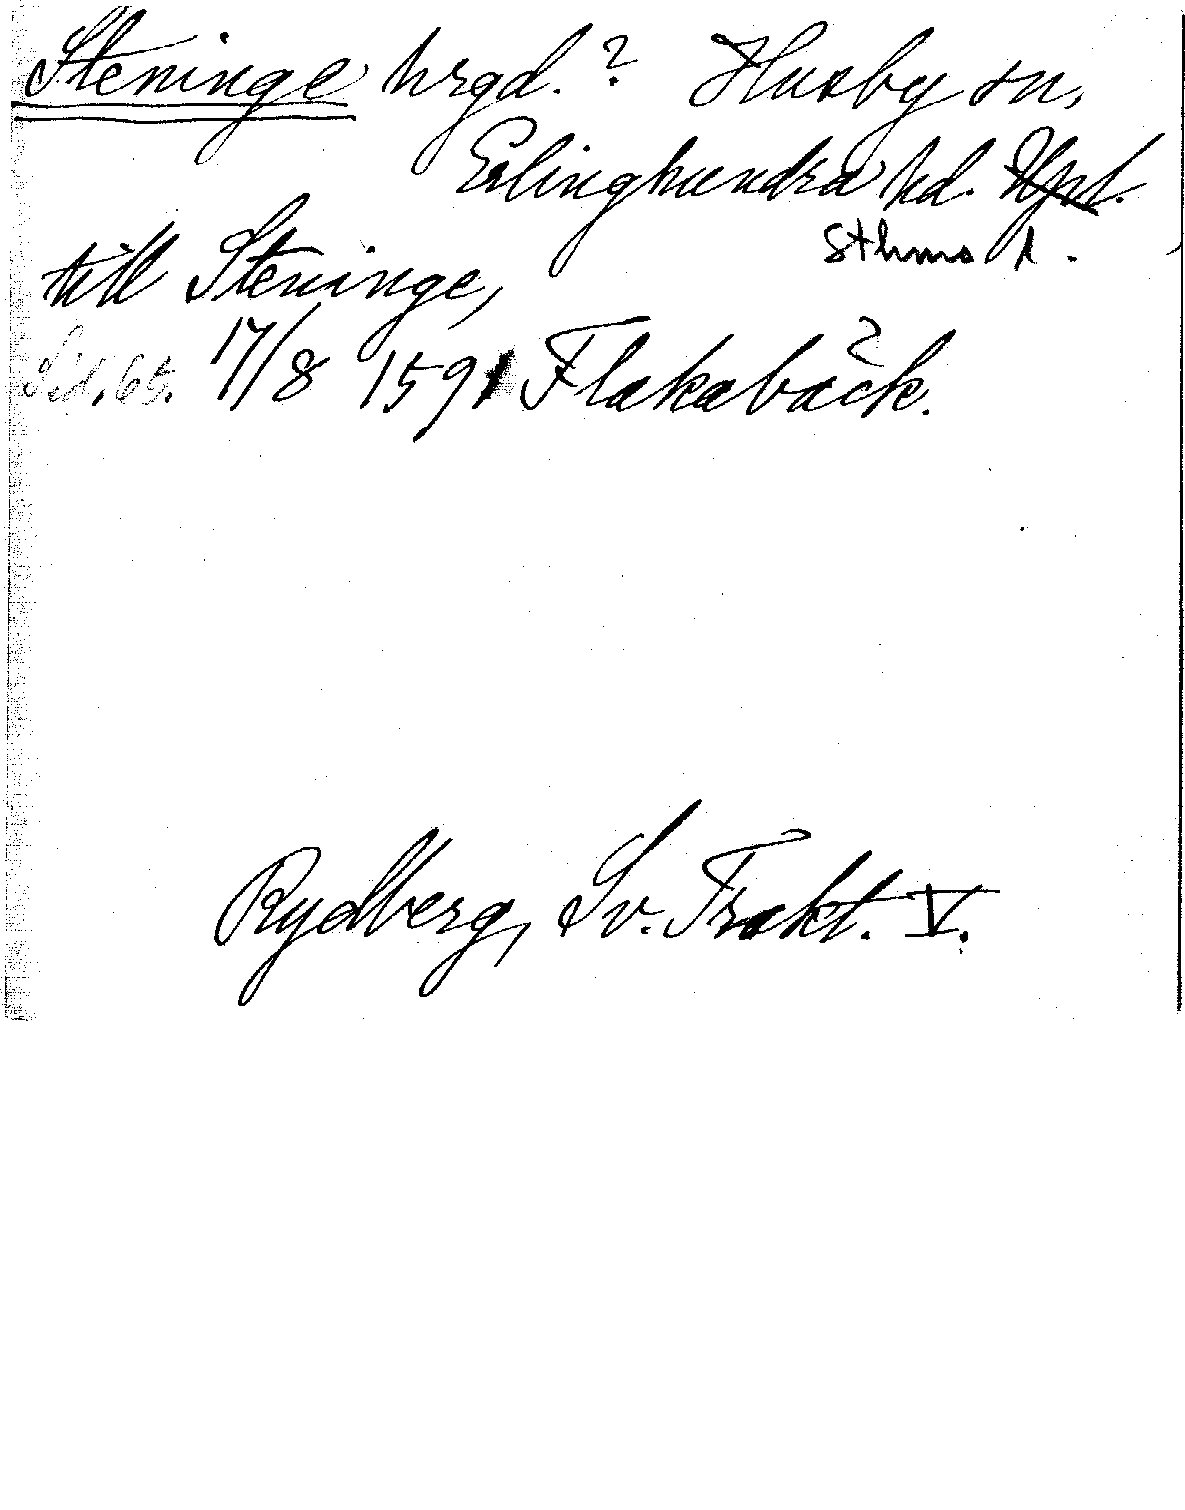 Steninge hrgd.? Husby sn,
Erlinghundra hd. Upl.
Sthms l.
till Steninge,
Sid. 65. 17/8 1591 Flakabäck.
Rydberg, Sv. Trakt. V.